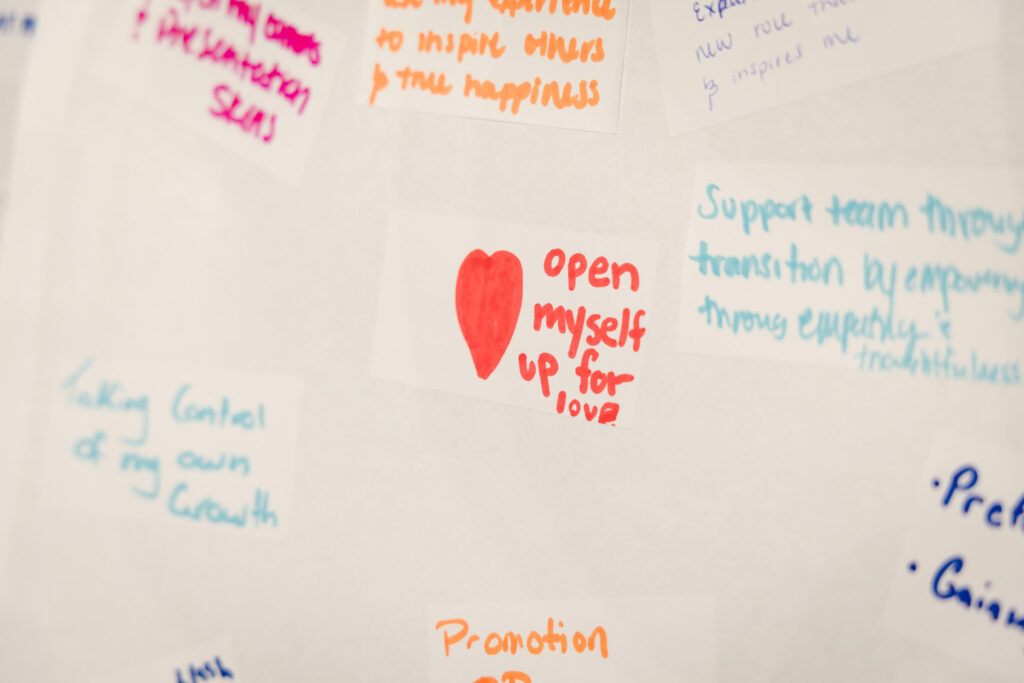 & Presentation
Skills
my experience
to inspire others
& true happiness
new role that
& inspires me
Support team through
transition by empowering
throug empathy &
thoughtfulness
open
myself
up for
love
Taking Control
of my own
Growth
Promotion